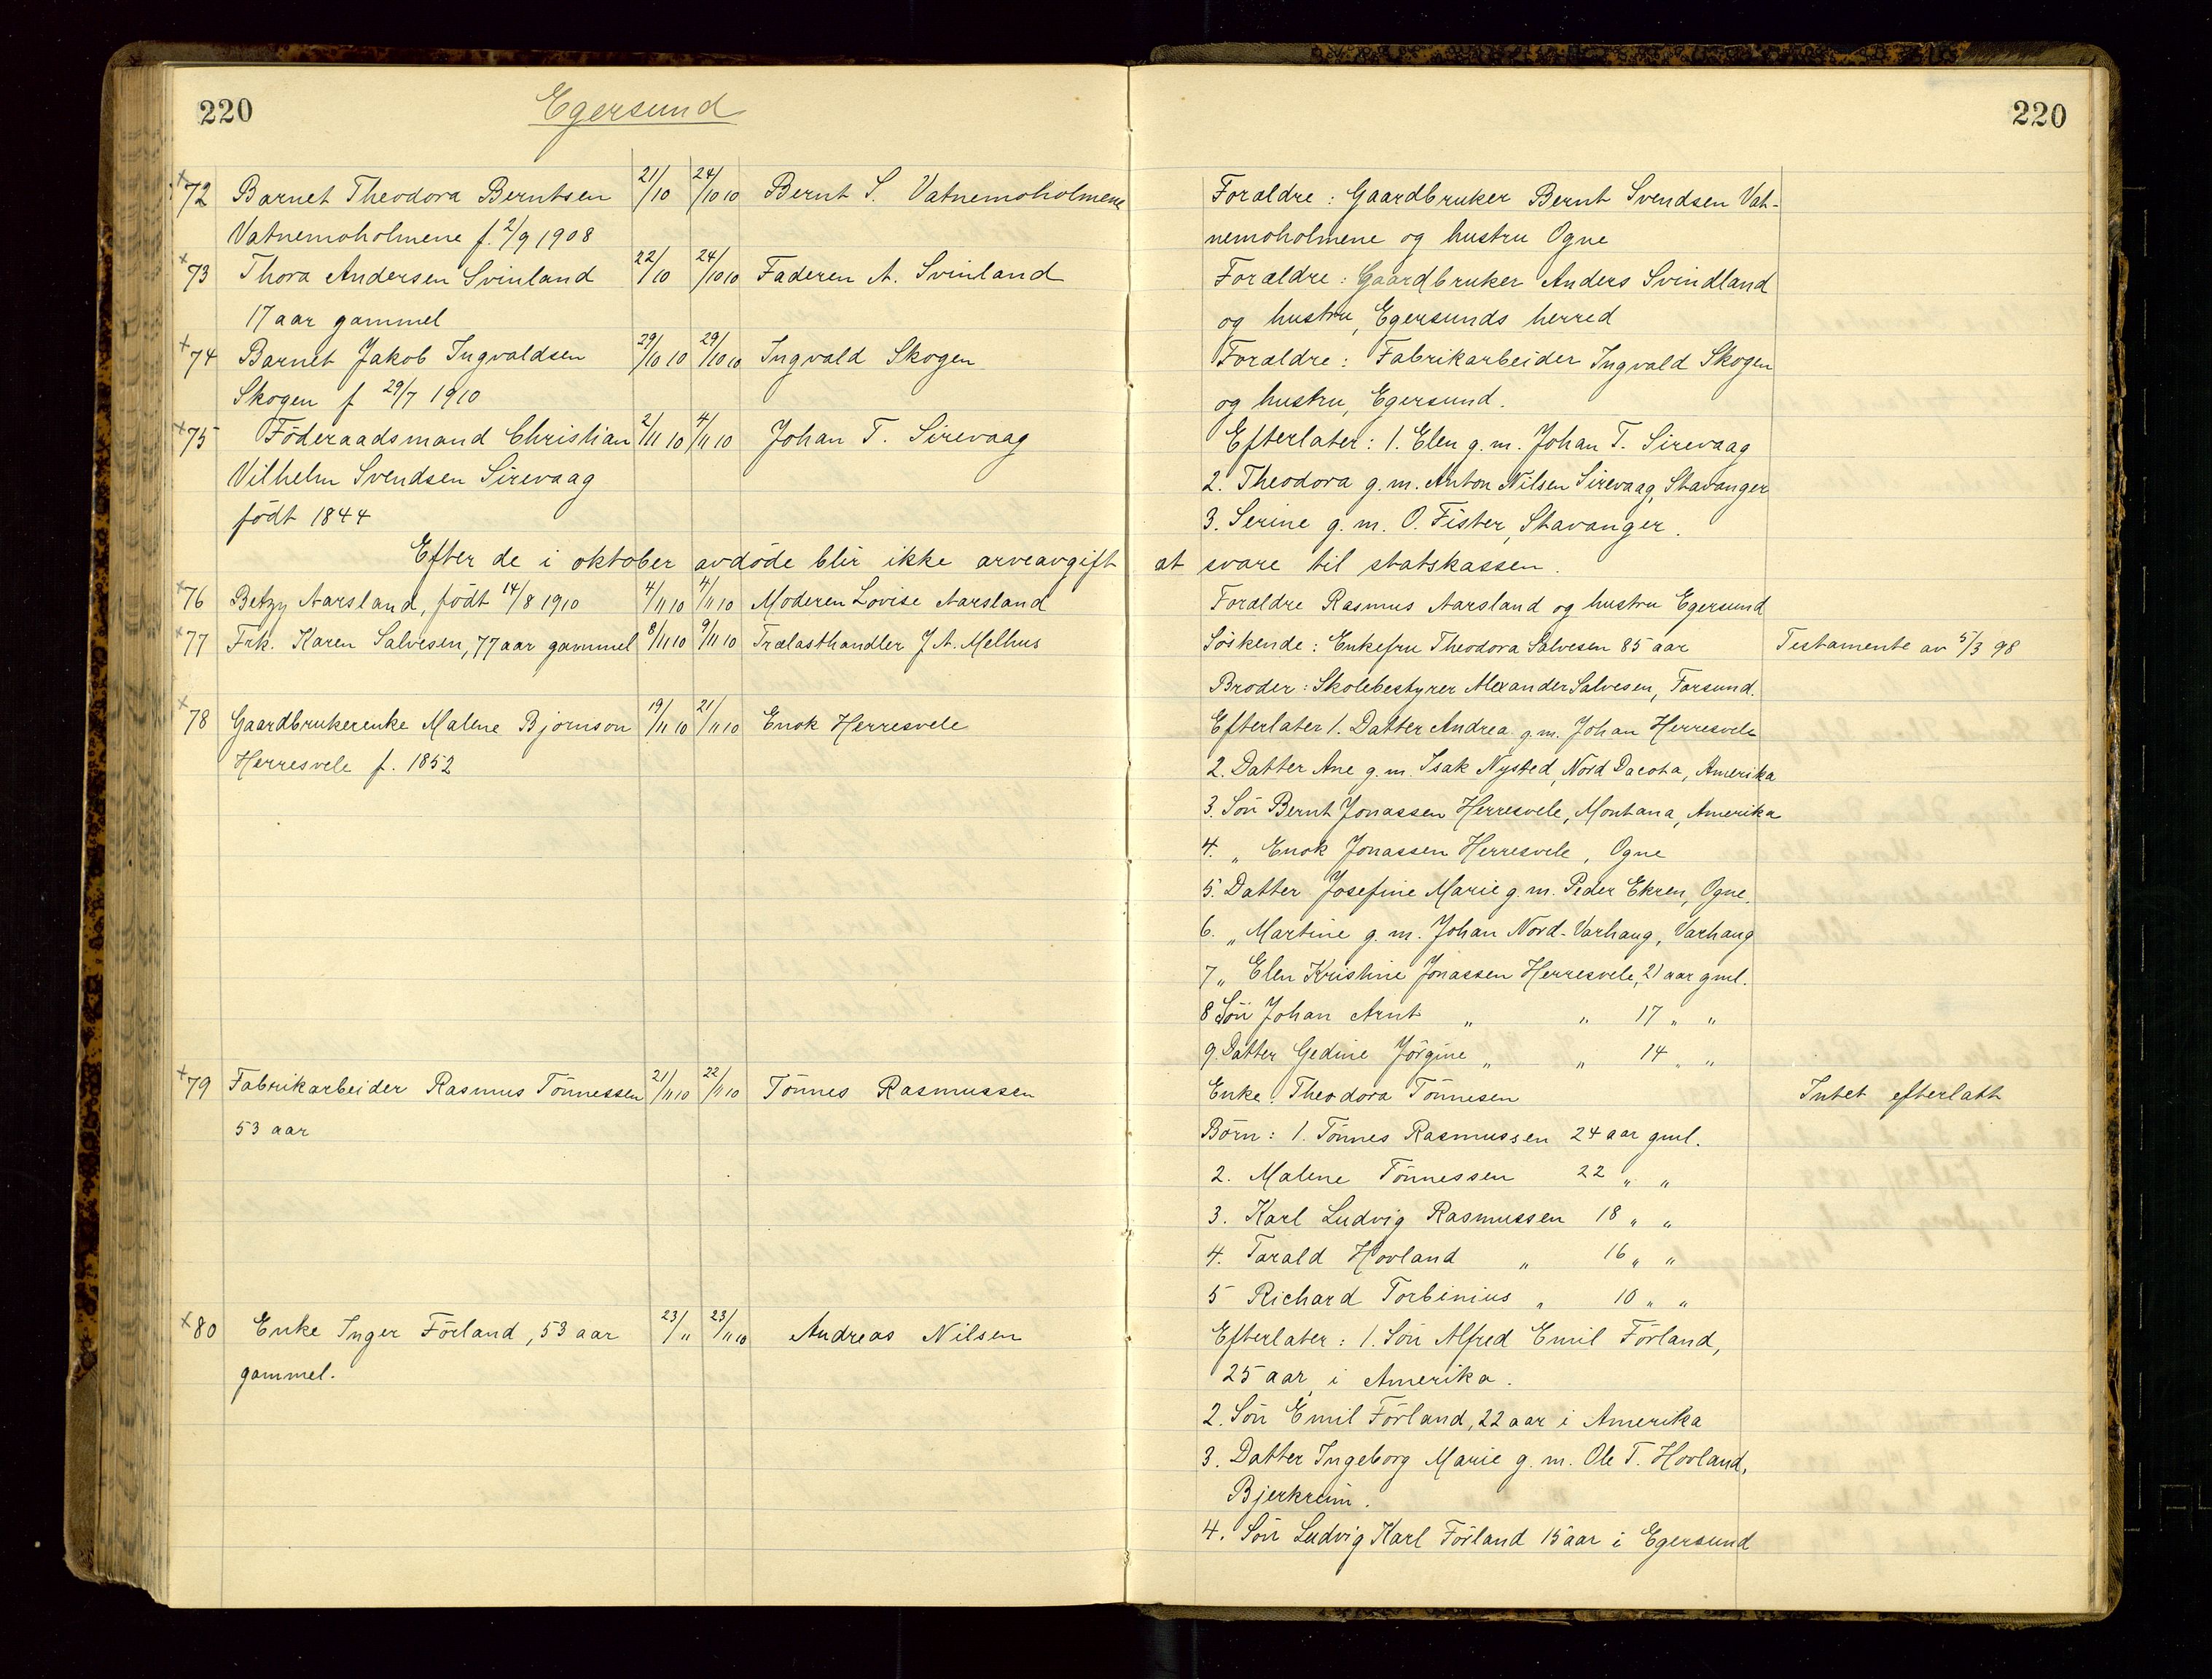 220
Egersund
220
+72 Barnet Theodora Berntsen 21/10 24/10 10 Bernt S. Vatnemoholmene Forældre: Gaardbruker Bernt Svendsen Vat-
Vatnemoholmene f. 2/9 1908 nemoholmene og hustru Ogne
+73 Thora Andersen Svinland 22/10 24/10 10 Faderen A. Svinland Forældre: Gaardbruker Anders Svindland
17 aar gammel og hustru, Egersunds herred
+74 Barnet Jakob Ingvaldsen 29/10 10 29/10 10 Ingvald Skogen Forældre: Fabrikarbeider Ingvald Skogen
Skogen f 29/7 1910 og hustru, Egersund.
+75 Föderaadsmand Christian 2/11 10 4/11 10 Johan T. Sirevaag Efterlater: 1. Elen g. m. Johan T. Sirevaag
Vilhelm Svendsen Sirevaag 2. Theodora g. m. Anton Nilsen Sirevaag, Stavanger
födt 1844 3. Serine g. m. O. Fister, Stavanger.
Efter de i oktober avdöde blir ikke arveavgift at svare til statskassen.
+76 Betzy Aarsland, födt 14/8 1910 4/11 10 4/11 10 Moderen Lovise Aarsland Forældre Rasmus Aarsland og hustru Egersund
+77 Frk. Karen Salvesen, 77 aar gammel 8/11 10 9/11 10 Trælasthandler J A. Melhus Söskende: Enkefru Theodora Salvesen 85 aar Testamente av 5/3 98
Broder: Skolebestyrer Alexander Salvesen, Farsund.
+78 Gaardbrukerenke Malene Bjornson 19/11 10 21/11 10 Enok Herresvele Efterlater 1. Datter Andrea g. m. Johan Herresvele
Herresvele f. 1852 2. Datter Ane g. m. Isak Nysted, Nord Dacota, Amerika
3. Sön Bernt Jonassen Herresvele, Montana, Amerika
4. " Enok Jonassen Herresvele, Ogne
5. Datter Josefine Marie g. m. Peder Ekren, Ogne.
6. " Martine g. m. Johan Nord-Varhaug, Varhaug
7 " Elen Kristine Jonassen Herresvele, 21 aar gml.
8 Sön Johan Arnt " " 17 " "
9. Datter Gedine Jörgine " " 14 " "
+79 Fabrikarbeider Rasmus Tönnessen 21/11 10 22/11 10 Tönnes Rasmussen Enke: Theodora Tönnesen Intet efterlatt
53 aar Börn: 1. Tönnes Rasmussen 24 aar gml.
2. Malene Tönnessen 22 " "
3. Karl Ludvig Rasmussen 18 " "
4. Tarald Hovland " 16 " "
5 Richard Torbinius " 10 " "
+80 Enke Inger Förland, 53 aar 23/11 23/11 10 Andreas Nilsen Efterlater: 1. Sön Alfred Emil Förland,
gammel. 25 aar, i Amerika.
2. Sön Emil Förland, 22 aar i Amerika
3. Datter Ingeborg Marie g. m. Ole T. Hovland,
Bjerkreim.
4. Sön Ludvig Karl Förland 15 aar i Egersund